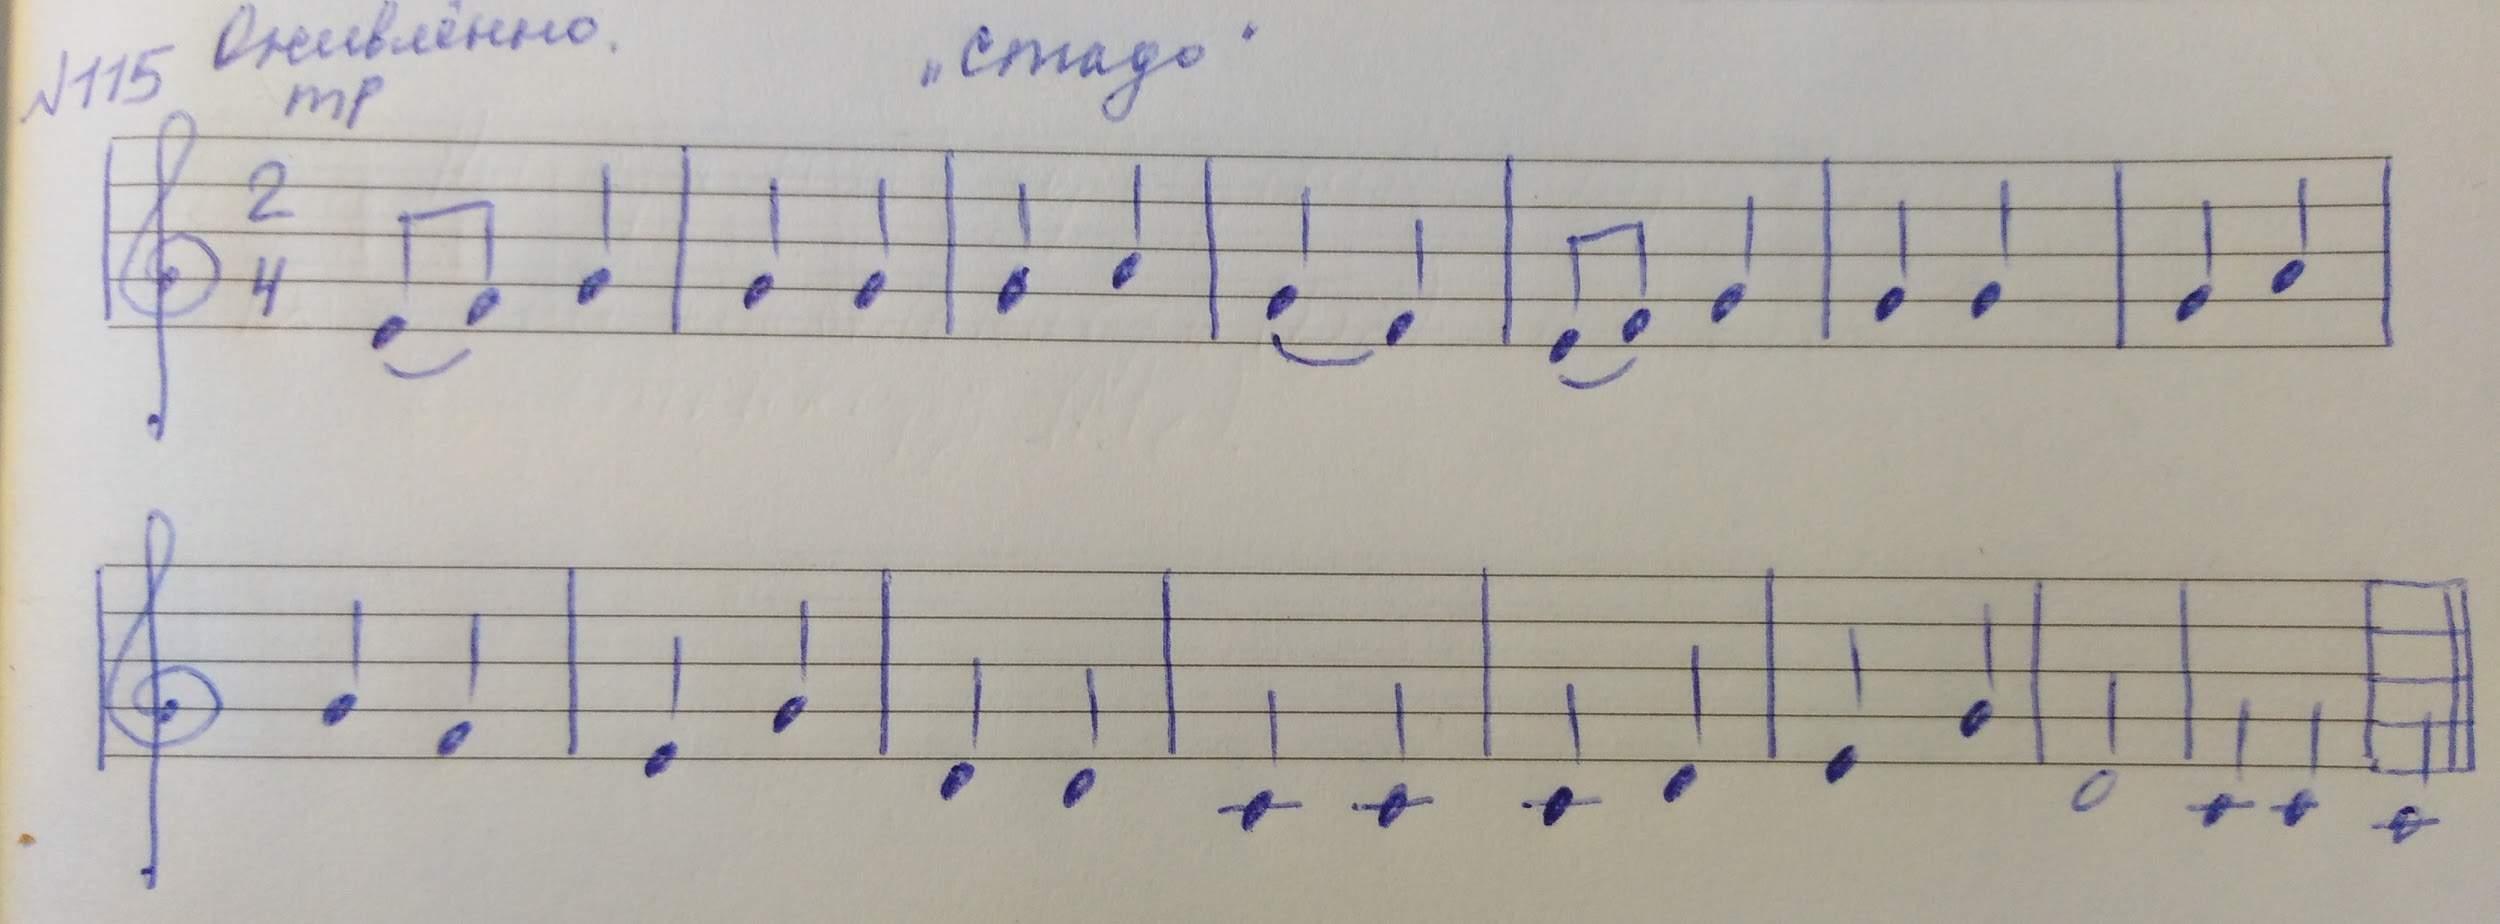 №115 Оживлённо. „Стадо"
mp
2
4